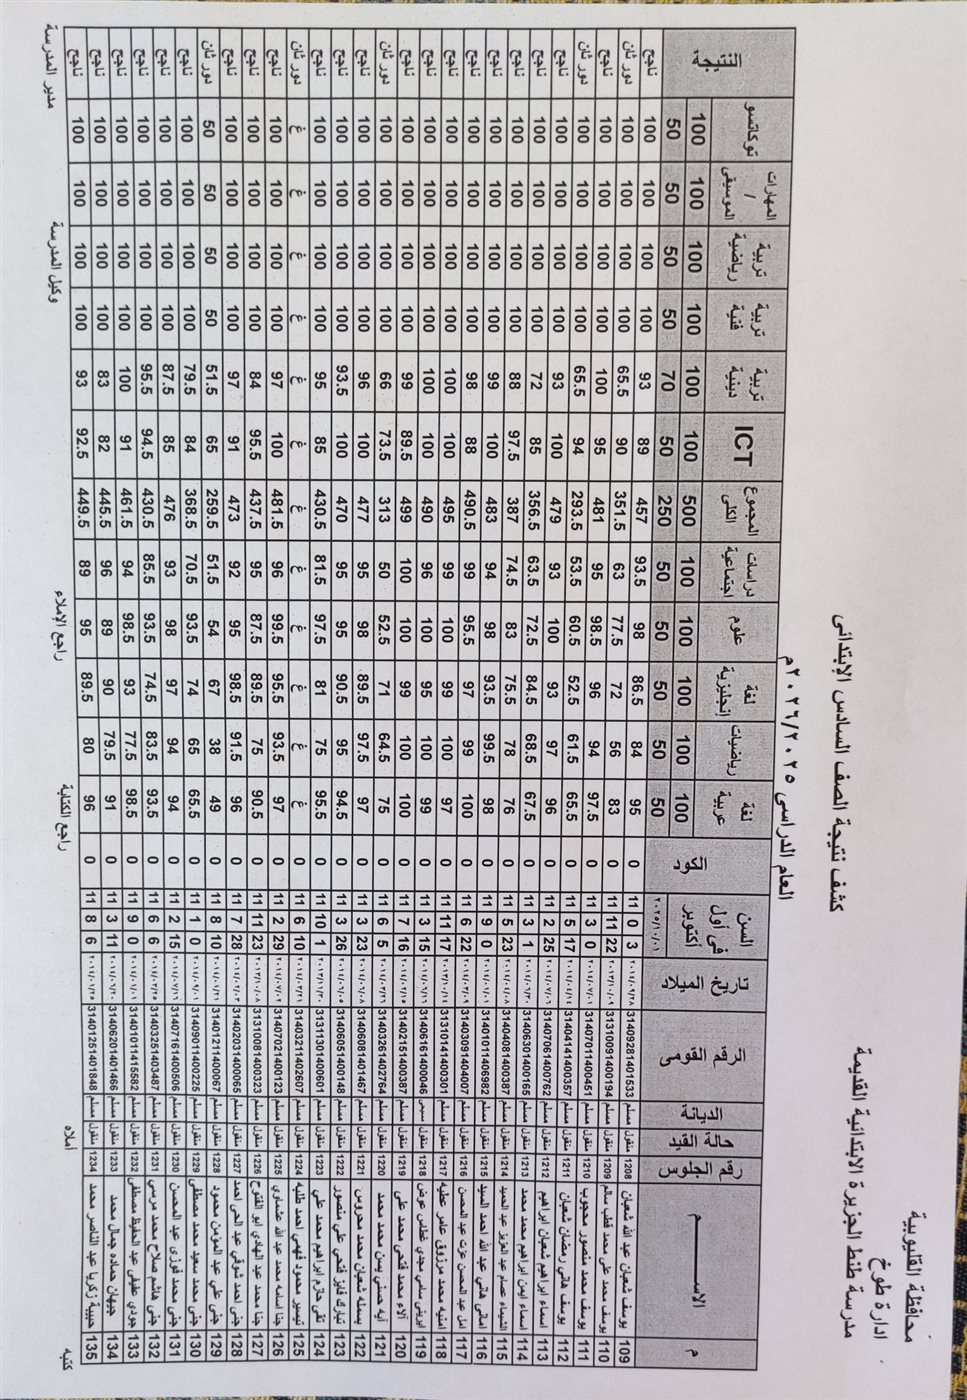 محافظة القليوبية
ادارة طوخ
مدرسة طنط الجزيرة الابتدائية القديمة
كشف نتيجة الصف السادس الإبتدائى
العام الدراسى ٢٠٢٦/٢٠٢٥م
م الاســـــــم رقم الجلوس حالة القيد الديانة الرقم القومى تاريخ الميلاد السن فى أول أكتوبر الكود لغة عربية رياضيات لغة إنجليزية علوم دراسات اجتماعية المجموع الكلى ICT تربية دينية تربية فنية تربية رياضية المهارات / الموسيقى توكاتسو النتيجة
100 100 100 100 100 500 100 100 100 100 100 100
٢٠٢٥/١٠/٠١ 50 50 50 50 50 250 50 70 50 50 50 50
109 يوسف شعبان عبد الله شعبان 1208 منقول مسلم 31409281401533 3 0 11 0 95 84 86.5 98 93.5 457 89 93 100 100 100 100 ناجح
110 يوسف محمد على محمد قطب سالم 1209 منقول مسلم 31310091400194 22 11 11 0 83 56 72 77.5 63 351.5 90 65.5 100 100 100 100 دور ثان
111 يوسف محمد منصور محجوب 1210 منقول مسلم 31407011400451 0 3 11 0 97.5 94 96 98.5 95 481 95 100 100 100 100 100 ناجح
112 يوسف هاني رمضان شعبان 1211 منقول مسلم 31404141400357 17 5 11 0 65.5 61.5 52.5 60.5 53.5 293.5 94 65.5 100 100 100 100 دور ثان
113 اسماء ابراهيم شعبان ابراهيم 1212 منقول مسلم 31407061400762 25 2 11 0 96 97 93 100 93 479 100 93 100 100 100 100 ناجح
114 اسماء ايمن ابراهيم محمد محمد 1213 منقول مسلم 31406301400165 1 3 11 0 67.5 68.5 84.5 72.5 63.5 356.5 85 72 100 100 100 100 ناجح
115 الشيماء عصام عبد العزيز عبد الحميد 1214 منقول مسلم 31404081400387 23 5 11 0 76 78 75.5 83 74.5 387 97.5 88 100 100 100 100 ناجح
116 امانى هاني عبد الله احمد السيد 1215 منقول مسلم 31401011406982 0 9 11 0 98 99.5 93.5 98 94 483 100 99 100 100 100 100 ناجح
117 امل عبد المحسن عزت عبد المحسن 1216 منقول مسلم 31403091404007 22 6 11 0 100 99 97 95.5 99 490.5 88 98 100 100 100 100 ناجح
118 امنيه محمد مرزوق عامر عطيه 1217 منقول مسلم 31310141400301 17 11 11 0 97 100 99 100 99 495 100 100 100 100 100 100 ناجح
119 ايرينى سامى مجدي غطاس عوض 1218 منقول 31406161400046 15 3 11 0 99 100 95 100 96 490 100 100 100 100 100 100 ناجح
120 آلاء محمد فتحى محمد على 1219 منقول مسلم 31402151400387 16 7 11 0 100 100 99 100 100 499 89.5 99 100 100 100 100 ناجح
121 أيه حسني يسن محمد محمد 1220 منقول مسلم 31403261402764 5 6 11 0 75 64.5 71 52.5 50 313 73.5 66 100 100 100 100 دور ثان
122 بسمله شعبان محمد محروس 1221 منقول مسلم 31406081401467 23 3 11 0 97 97.5 89.5 98 95 477 100 96 100 100 100 100 ناجح
123 تبارك فايز فتحي على منصور 1222 منقول مسلم 31406051400148 26 3 11 0 94.5 95 90.5 95 95 470 100 93.5 100 100 100 100 ناجح
124 تقى حازم ابراهيم محمد على 1223 منقول مسلم 31311301400601 1 10 11 0 95.5 75 81 97.5 81.5 430.5 85 95 100 100 100 100 ناجح
125 تيسير محمود فهمي احمد طلبه 1224 منقول مسلم 31403211402607 10 6 11 0 غ غ غ غ غ غ غ غ غ غ غ غ دور ثان
126 جنا اسامه محمد عبد الله عشماوي 1225 منقول مسلم 31407021400123 29 2 11 0 97 93.5 95.5 99.5 96 481.5 100 97 100 100 100 100 ناجح
127 جنا محمد عبد الهادي ابو الفتوح 1226 منقول مسلم 31310081400323 23 11 11 0 90.5 75 89.5 87.5 95 437.5 95.5 84 100 100 100 100 ناجح
128 جنى احمد شوقى عبد الحى احمد 1227 منقول مسلم 31402031400065 28 7 11 0 96 91.5 98.5 95 92 473 91 97 100 100 100 100 ناجح
129 جنى علي عبد المؤمن محمود 1228 منقول مسلم 31401211400067 10 8 11 0 49 38 67 54 51.5 259.5 65 51.5 50 50 50 50 دور ثان
130 جنى محمد سعيد محمد مصطفى 1229 منقول مسلم 31409011400225 0 1 11 0 65.5 65 74 93.5 70.5 368.5 84 79.5 100 100 100 100 ناجح
131 جنى محمد فوزى عبد المحسن 1230 منقول مسلم 31407161400506 15 2 11 0 94 94 97 98 93 476 85 87.5 100 100 100 100 ناجح
132 جنى هاشم صلاح محمد مرسي 1231 منقول مسلم 31403251403487 6 6 11 0 93.5 83.5 74.5 93.5 85.5 430.5 94.5 95.5 100 100 100 100 ناجح
133 جودي عفيفى عبد الحفيظ مصطفى 1232 منقول مسلم 31401011415582 0 9 11 0 98.5 77.5 93 98.5 94 461.5 91 100 100 100 100 100 ناجح
134 جيهان حماده جمال محمد 1233 منقول مسلم 31406201401466 11 3 11 0 91 79.5 90 89 96 445.5 82 83 100 100 100 100 ناجح
135 حبيبة زكريا عبد الناصر محمد 1234 منقول مسلم 31401251401848 6 8 11 0 96 80 89.5 95 89 449.5 92.5 93 100 100 100 100 ناجح
كتبه أملاه راجع الكتابة راجع الإملاء وكيل المدرسة مدير المدرسة